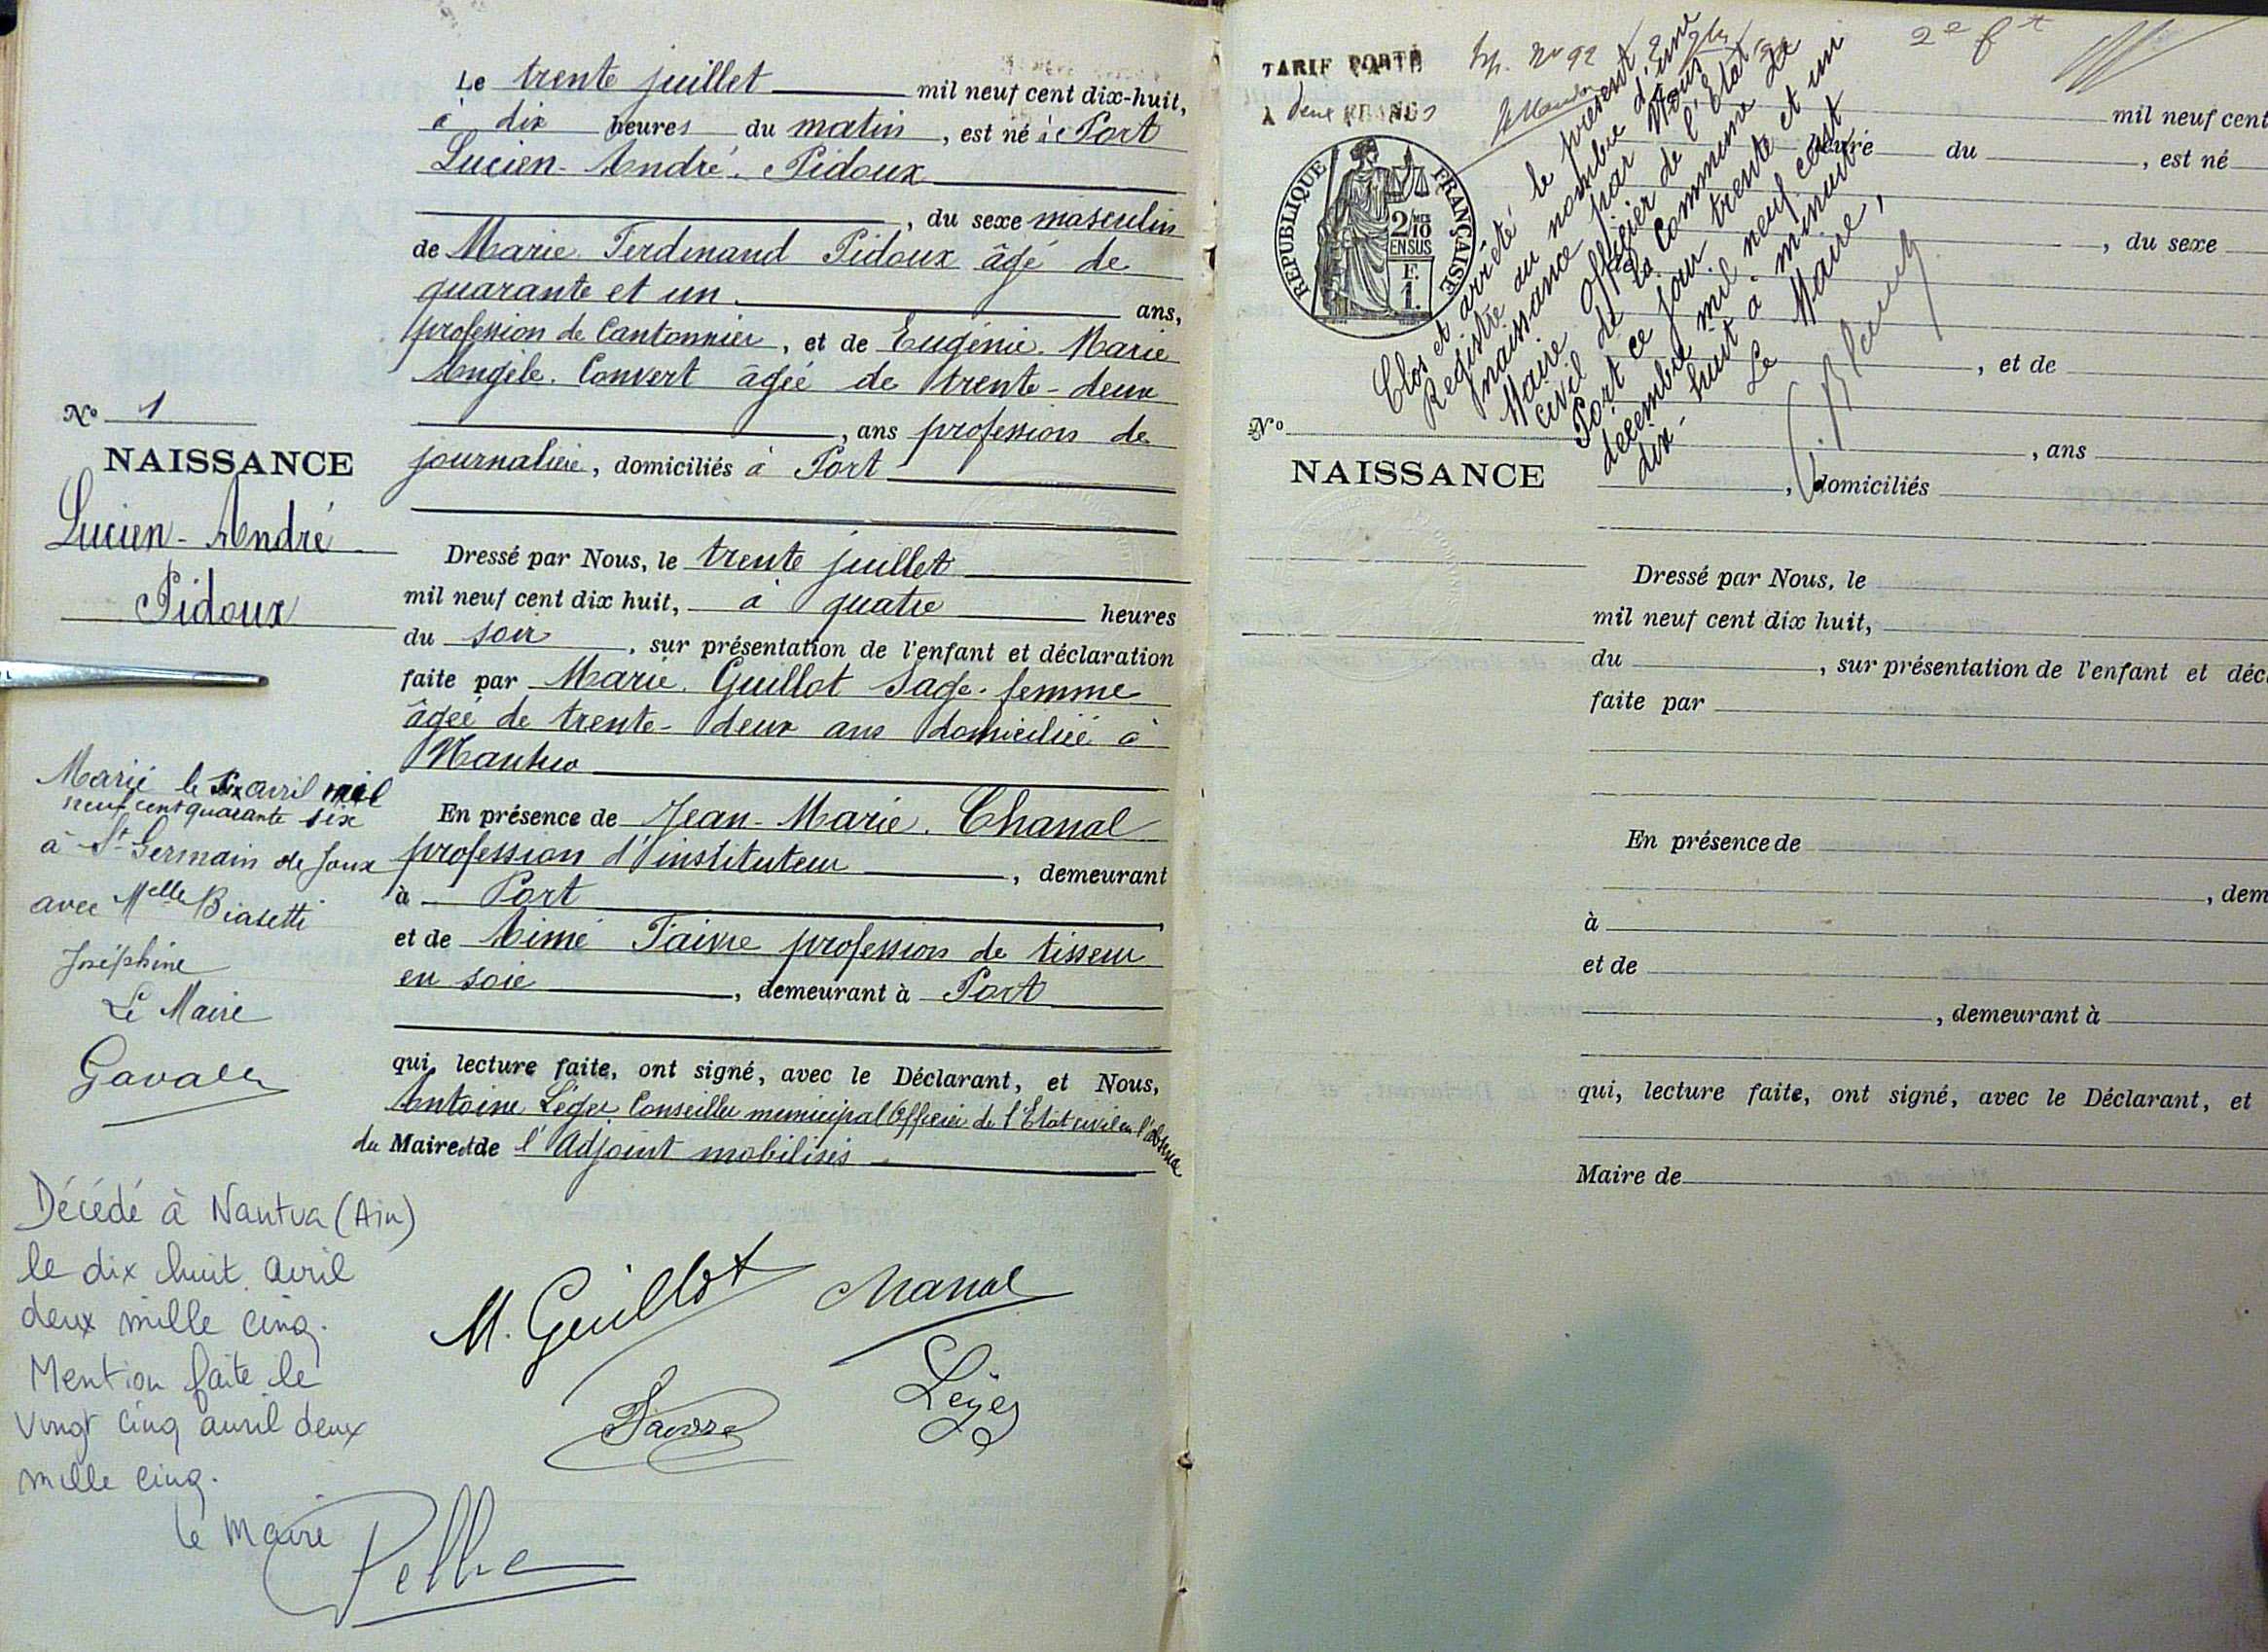 Le trente juillet mil neuf cent dix-huit,
à dix heures du matin, est né à Port
Lucien-André. Pidoux
, du sexe masculin
de Marie Ferdinand Pidoux âgé de
quarante et un ans,
profession de Cantonnier, et de Eugénie. Marie
Angèle. Convert âgée de trente-deux
, ans profession de
journalière, domiciliés à Port
No 1
NAISSANCE
Lucien-André
Pidoux
Dressé par Nous, le trente juillet
mil neuf cent dix huit, à quatre heures
du soir, sur présentation de l'enfant et déclaration
faite par Marie. Guillot Sage-femme
âgée de trente-deux ans domiciliée à
Nantua
En présence de Jean-Marie. Chanal
profession d'instituteur, demeurant
à Port
et de Aimé Faivre profession de tisseur
en soie, demeurant à Port
qui, lecture faite, ont signé, avec le Déclarant, et Nous,
Antoine Léger Conseiller municipal Officier de l'Etat civil en l'absence
du Maire et de l'Adjoint mobilisés
Marié le six avril mil
neuf cent quarante six
à St Germain de Joux
avec Melle Biasetti
Joséphine
Le Maire
Décédé à Nantua (Ain)
le dix huit avril
deux mille cinq.
Mention faite le
vingt cinq avril deux
mille cinq.
le Maire
M. Guillot Chanal
Faivre Léger
TARIF PORTÉ
A deux FRANCS
REPUBLIQUE FRANÇAISE
2/10
EN SUS
F.
1.
Clos et arrêté le présent
Registre au nombre d'une
naissance par Nous
Maire Officier de l'Etat
civil de la Commune de
Port ce jour trente et un
décembre mil neuf cent
dix-huit à minuit
Le Maire,
mil neuf cent
heure du , est né
, du sexe
, et de
No
, ans
NAISSANCE
, domiciliés
Dressé par Nous, le
mil neuf cent dix huit,
du , sur présentation de l'enfant et déc
faite par
En présence de
, dem
à
et de
, demeurant à
qui, lecture faite, ont signé, avec le Déclarant, et
Maire de